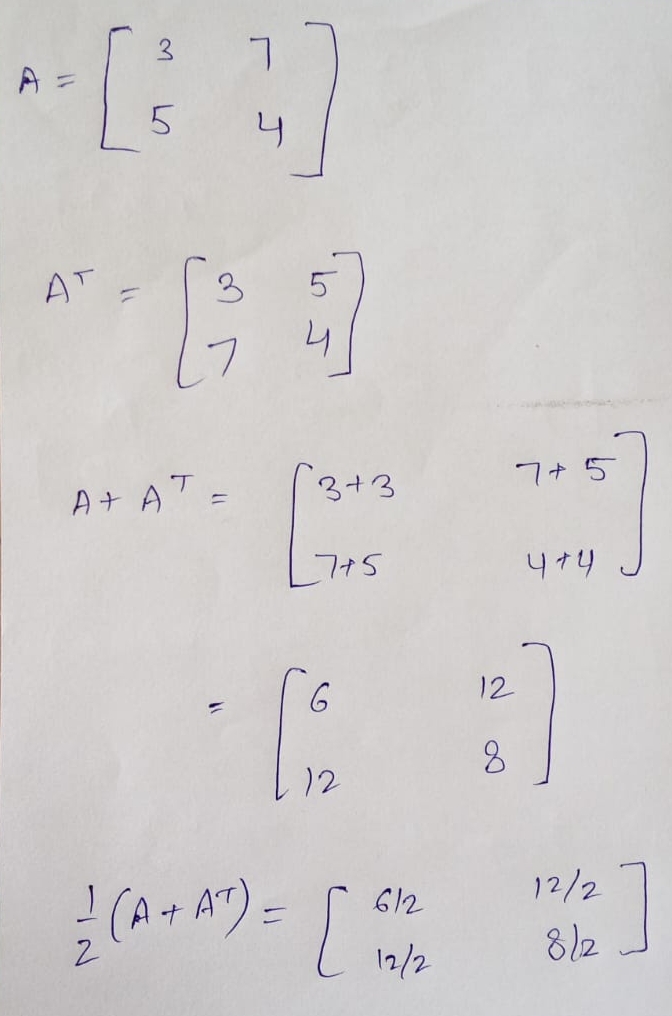 A = [ 3 7
5 4 ]
Aᵀ = [ 3 5
7 4 ]
A + Aᵀ = [ 3+3 7+5
7+5 4+4 ]
= [ 6 12
12 8 ]
1/2 (A + Aᵀ) = [ 6/2 12/2
12/2 8/2 ]